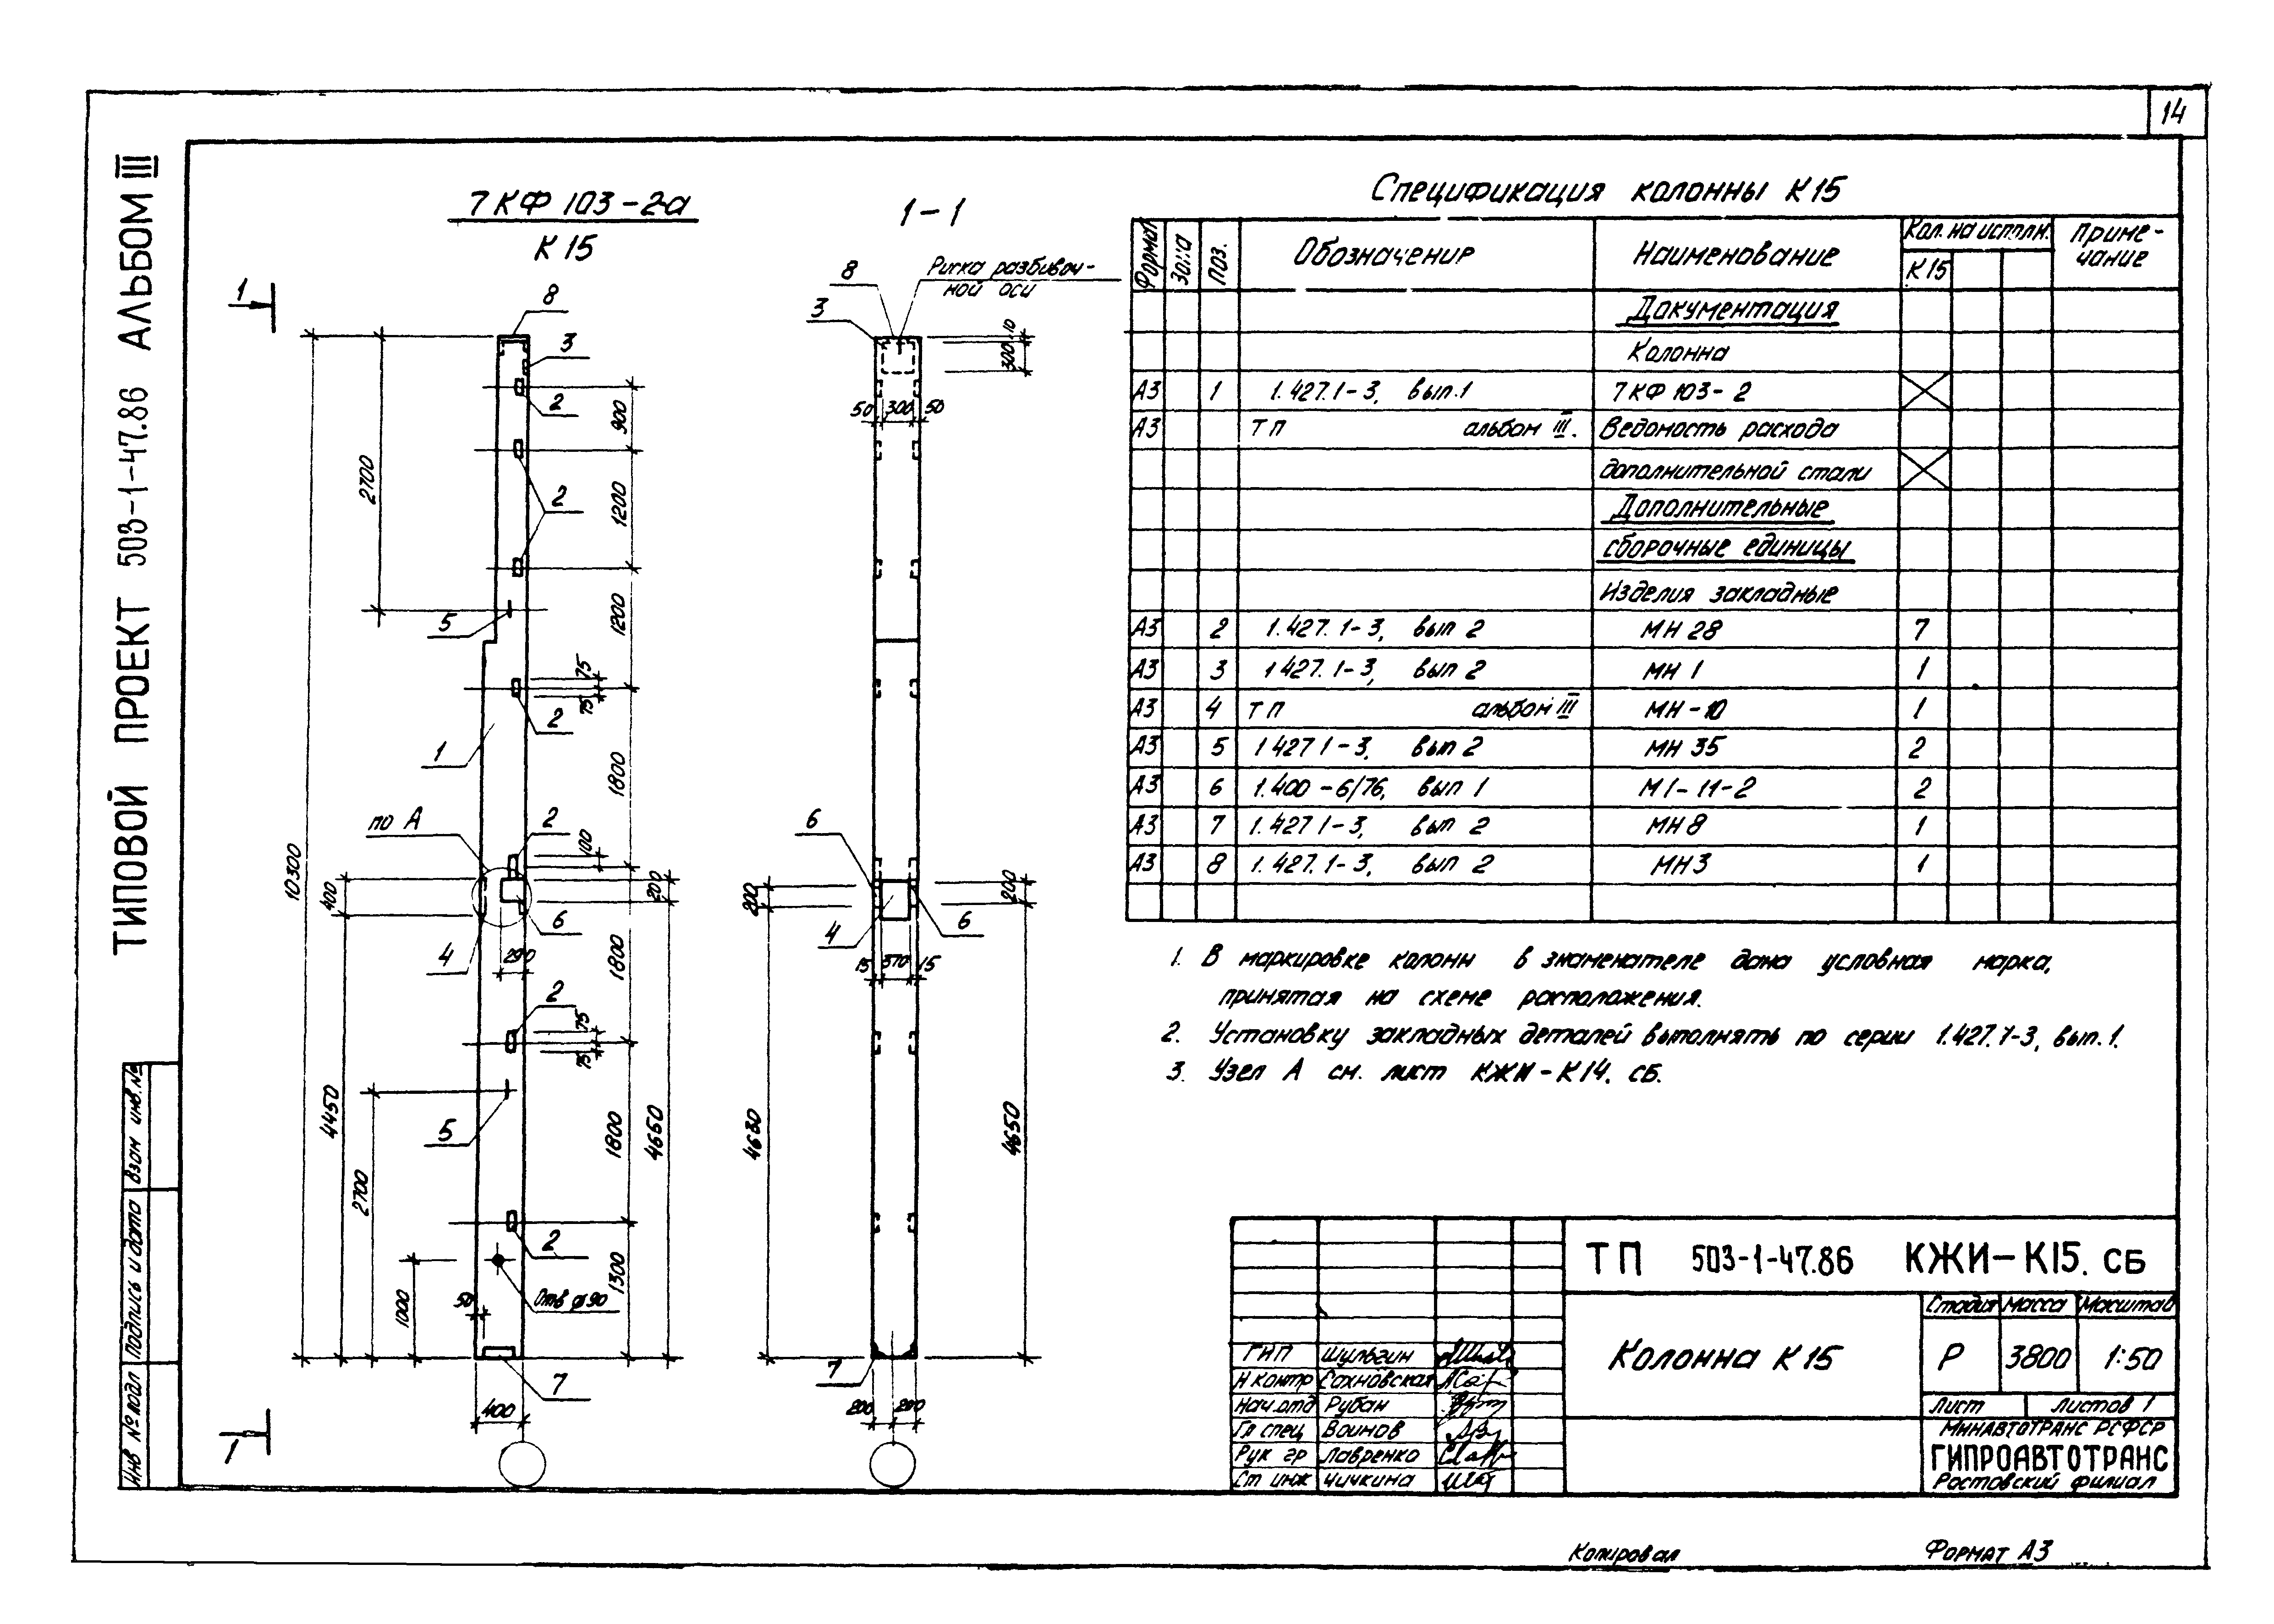 14
ТИПОВОЙ ПРОЕКТ 503-1-47.86 АЛЬБОМ III
7КФ 103-2-а
К 15
1-1
1
8
3
2
900
2700
2
1200
5
1200
75
75
2
1
1800
по А
2
100
10300
400
200
6
4
290
1800
2
75
75
4450
5
2700
1800
4650
2
1300
1000
50
Отв ф90
7
400
1
8
Риска разбивоч-
ной оси
3
10
300
50 300 50
6
200
200
4
6
15 370 15
4630
4650
7
200 200
Спецификация колонны К 15
Формат Зона Поз. Обозначение Наименование Кол. на исполн. Приме-
чание
К 15
Документация
Колонна
А3 1 1.427.1-3, вып.1 7 КФ 103-2
А3 ТП альбом III. Ведомость расхода
дополнительной стали
Дополнительные
сборочные единицы
Изделия закладные
А3 2 1.427. 1-3, вып 2 МН 28 7
А3 3 1 427. 1-3, вып 2 МН 1 1
А3 4 ТП альбом III МН-10 1
А3 5 1 427 1-3, вып 2 МН 35 2
А3 6 1.400-6/76, вып 1 М1-11-2 2
А3 7 1.427 1-3, вып 2 МН 8 1
А3 8 1.427. 1-3, вып 2 МН 3 1
1. В маркировке колонн в знаменателе дана условная марка,
принятая на схеме расположения.
2. Установку закладных деталей выполнять по серии 1.427.1-3, вып.1.
3. Узел А см. лист КЖИ-К14. СБ.
ТП 503-1-47.86 КЖИ-К15. СБ
Колонна К 15
Стадия Масса Масштаб
Р 3800 1:50
Лист Листов 1
МИНАВТОТРАНС РСФСР
ГИПРОАВТОТРАНС
Ростовский филиал
ГИП Шульгин
Н контр Сахновская
Нач.отд Рубан
Гл спец Воинов
Рук гр Лавренко
Ст инж Чичкина
Инв № подл Подпись и дата Взам инв. №
Копировал
Формат А3